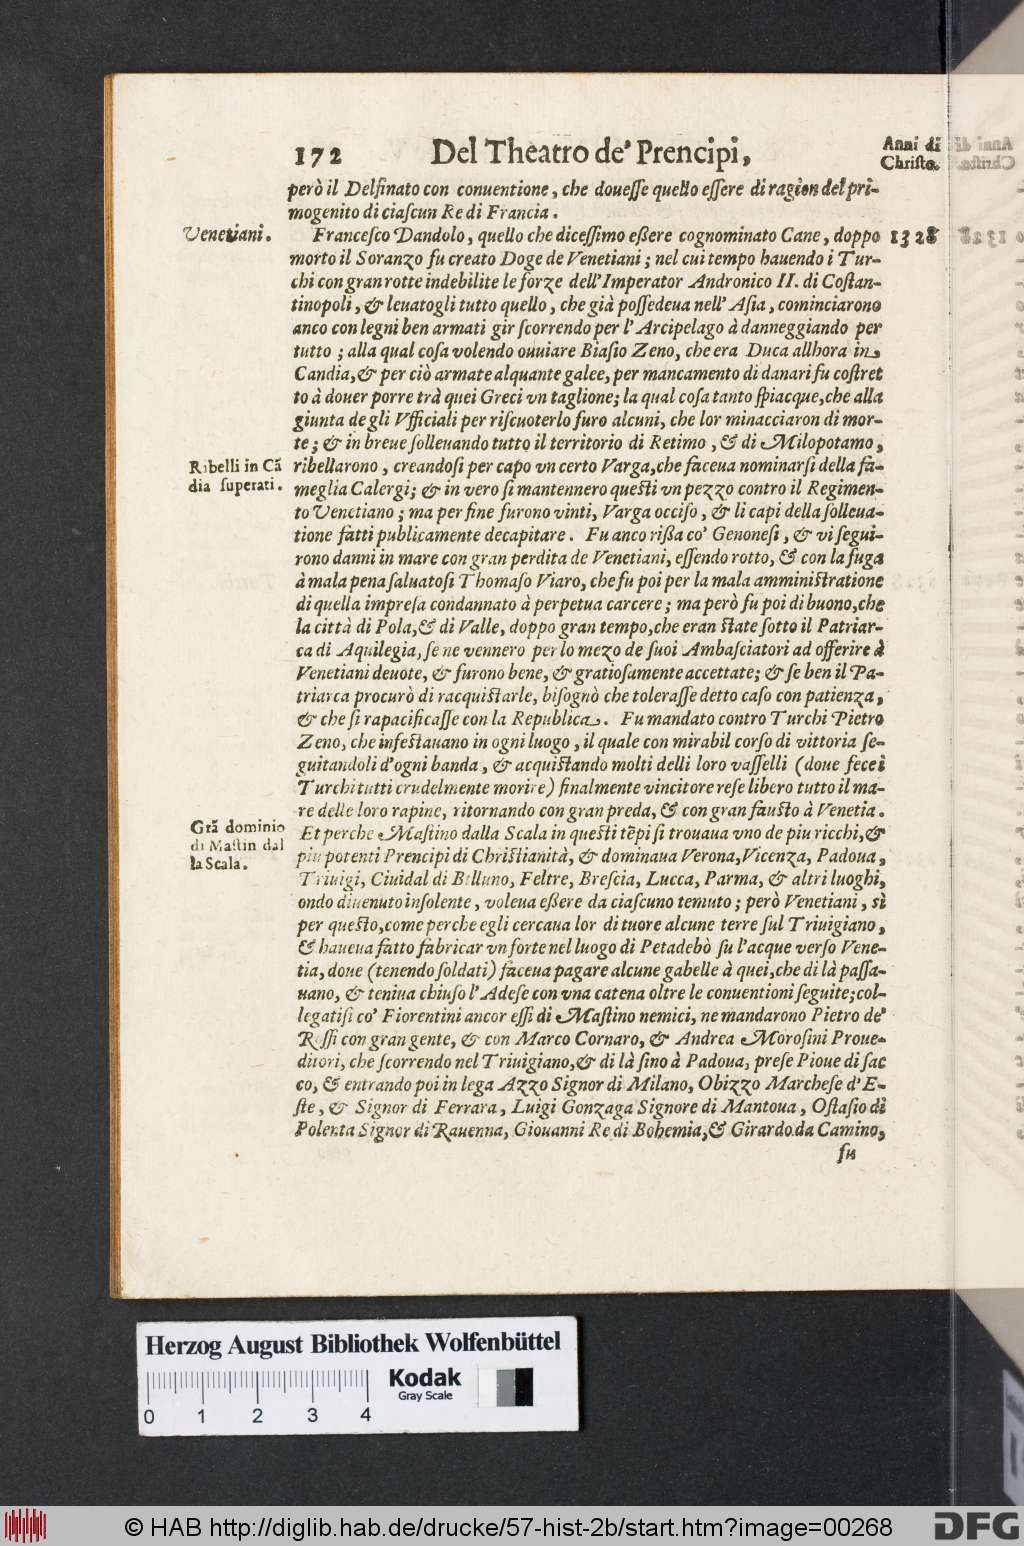 172 Del Theatro de' Prencipi, Anni di
Christo.
però il Delfinato con conuentione, che douesse quello essere di ragion del pri-
mogenito di ciascun Re di Francia.
Venetiani. Francesco Dandolo, quello che dicessimo eßere cognominato Cane, doppo 1328
morto il Soranzo fu creato Doge de Venetiani; nel cui tempo hauendo i Tur-
chi con gran rotte indebilite le forze dell'Imperator Andronico II. di Costan-
tinopoli, & leuatogli tutto quello, che già possedeua nell' Asia, cominciarono
anco con legni ben armati gir scorrendo per l' Arcipelago à danneggiando per
tutto; alla qual cosa volendo ouuiare Biasio Zeno, che era Duca allhora in
Candia, & per ciò armate alquante galee, per mancamento di danari fu costret
to à douer porre trà quei Greci vn taglione; la qual cosa tanto spiacque, che alla
giunta de gli Vfficiali per riscuoterlo furo alcuni, che lor minacciaron di mor-
te; & in breue solleuando tutto il territorio di Retimo, & di Milopotamo,
Ribelli in Cã ribellarono, creandosi per capo vn certo Varga, che faceua nominarsi della fa-
dia superati. meglia Calergi; & in vero si mantennero questi vn pezzo contro il Regimen-
to Venetiano; ma per fine furono vinti, Varga occiso, & li capi della solleua-
tione fatti publicamente decapitare. Fu anco rißa co' Genonesi, & vi segui-
rono danni in mare con gran perdita de Venetiani, essendo rotto, & con la fuga
à mala pena saluatosi Thomaso Viaro, che fu poi per la mala amministratione
di quella impresa condannato à perpetua carcere; ma però fu poi di buono, che
la città di Pola, & di Valle, doppo gran tempo, che eran state sotto il Patriar-
ca di Aquilegia, se ne vennero per lo mezo de suoi Ambasciatori ad offerire à
Venetiani deuote, & furono bene, & gratiosamente accettate; & se ben il Pa-
triarca procurò di racquistarle, bisognò che tolerasse detto caso con patienza,
& che si rapacificasse con la Republica. Fu mandato contro Turchi Pietro
Zeno, che infestauano in ogni luogo, il quale con mirabil corso di vittoria se-
guitandoli d'ogni banda, & acquistando molti delli loro vasselli (doue fece i
Turchi tutti crudelmente morire) finalmente vincitore rese libero tutto il ma-
re delle loro rapine, ritornando con gran preda, & con gran fausto à Venetia.
Grã dominio Et perche Mastino dalla Scala in questi tẽpi si trouaua vno de piu ricchi, &
di Mastin dal piu potenti Prencipi di Christianità, & dominaua Verona, Vicenza, Padoua,
la Scala. Triuigi, Ciuidal di Belluno, Feltre, Brescia, Lucca, Parma, & altri luoghi,
ondo diuenuto insolente, voleua eßere da ciascuno temuto; però Venetiani, sì
per questo, come perche egli cercaua lor di tuore alcune terre sul Triuigiano,
& haueua fatto fabricar vn forte nel luogo di Petadebò su l'acque verso Vene-
tia, doue (tenendo soldati) faceua pagare alcune gabelle à quei, che di là passa-
uano, & teniua chiuso l' Adese con vna catena oltre le conuentioni seguite; col-
legatisi co' Fiorentini ancor essi di Mastino nemici, ne mandarono Pietro de'
Rossi con gran gente, & con Marco Cornaro, & Andrea Morosini Proue-
ditori, che scorrendo nel Triuigiano, & di là sino à Padoua, prese Pioue di sac
co, & entrando poi in lega Azzo Signor di Milano, Obizzo Marchese d'E-
ste, & Signor di Ferrara, Luigi Gonzaga Signore di Mantoua, Ostasio di
Polenta Signor di Rauenna, Giouanni Re di Bohemia, & Girardo da Camino,
su
Herzog August Bibliothek Wolfenbüttel
Kodak
Gray Scale
0 1 2 3 4
© HAB http://diglib.hab.de/drucke/57-hist-2b/start.htm?image=00268 DFG